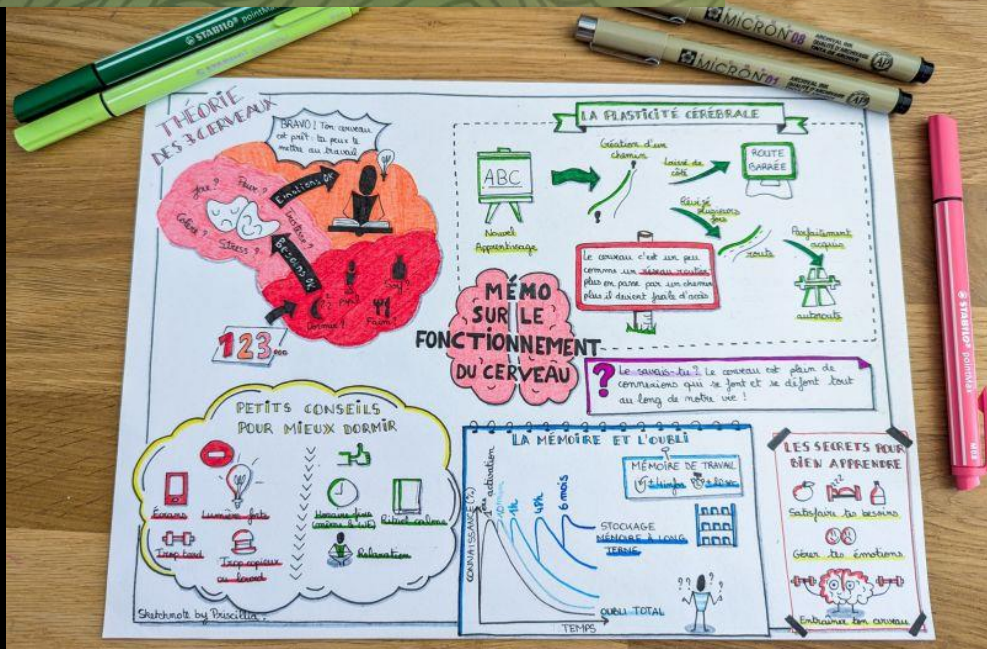 STABILO pointMax
STABILO
MICRON 08
MICRON 01
STABILO pointMax
THÉORIE
DES 3 CERVEAUX
BRAVO ! Ton cerveau
est prêt : tu peux te
mettre au travail
Joie ?
Peur ?
Colère ?
Stress ?
Tristesse ?
Émotions OK
Besoins OK
Pipi ?
Soif ?
Dormir ?
Faim ?
123...
LA PLASTICITÉ CÉRÉBRALE
ABC
Nouvel
Apprentissage
Création d'un
chemin
Laissé de
côté
ROUTE
BARRÉE
Révisé
plusieurs
fois
route
Parfaitement
acquis
autoroute
Le cerveau c'est un peu
comme un réseau routier
plus on passe par un chemin
plus il devient facile d'accès
MÉMO
SUR LE
FONCTIONNEMENT
DU CERVEAU
? Le savais-tu ? Le cerveau est plein de
connexions qui se font et se défont tout
au long de notre vie !
PETITS CONSEILS
POUR MIEUX DORMIR
Écrans
Lumière forte
Trop tard
Trop copieux
ou lourd
Horaires fixes
(même le WE)
Rituel calme
Relaxation
Sketchnote by Priscillia.
LA MÉMOIRE ET L'OUBLI
CONNAISSANCE (%)
1ère activation
10min
1h
48h
6 mois
MÉMOIRE DE TRAVAIL
STOCKAGE
MÉMOIRE À LONG
TERME
OUBLI TOTAL
TEMPS
LES SECRETS POUR
BIEN APPRENDRE
Satisfaire tes besoins
Gérer tes émotions
Entraîner ton cerveau